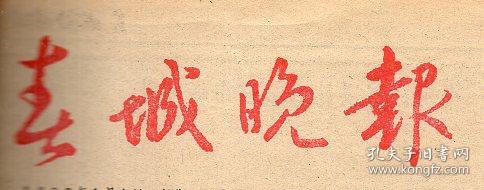 春城晚報
孔夫子旧书网
www.kongfz.com